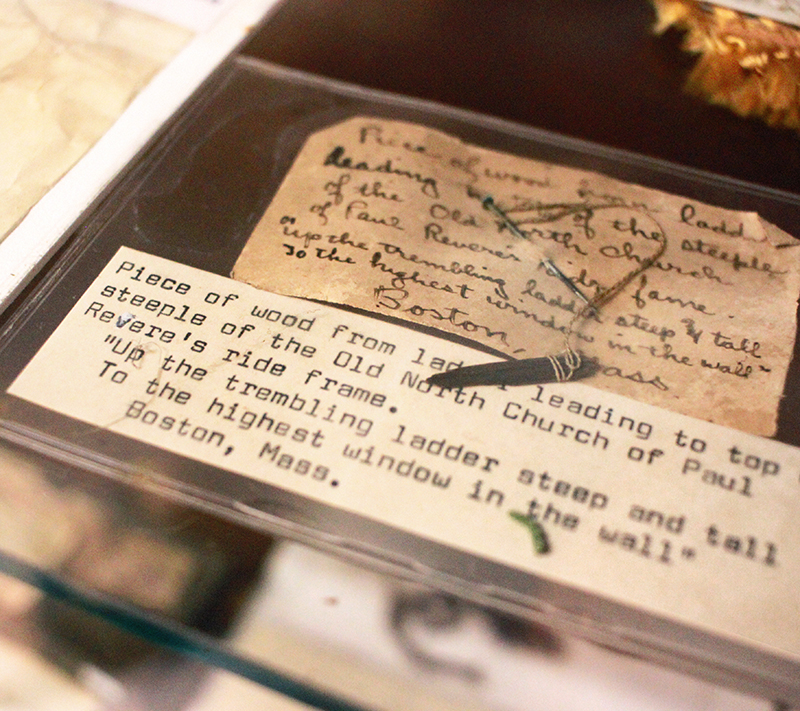 Piece of wood from ladder
leading to top of the steeple
of the Old North Church
of Paul Revere's ride fame.
"up the trembling ladder steep & tall
To the highest window in the wall"
Boston, Mass
Piece of wood from ladder leading to top
steeple of the Old North Church of Paul
Revere's ride frame.
"Up the trembling ladder steep and tall
To the highest window in the wall"
Boston, Mass.